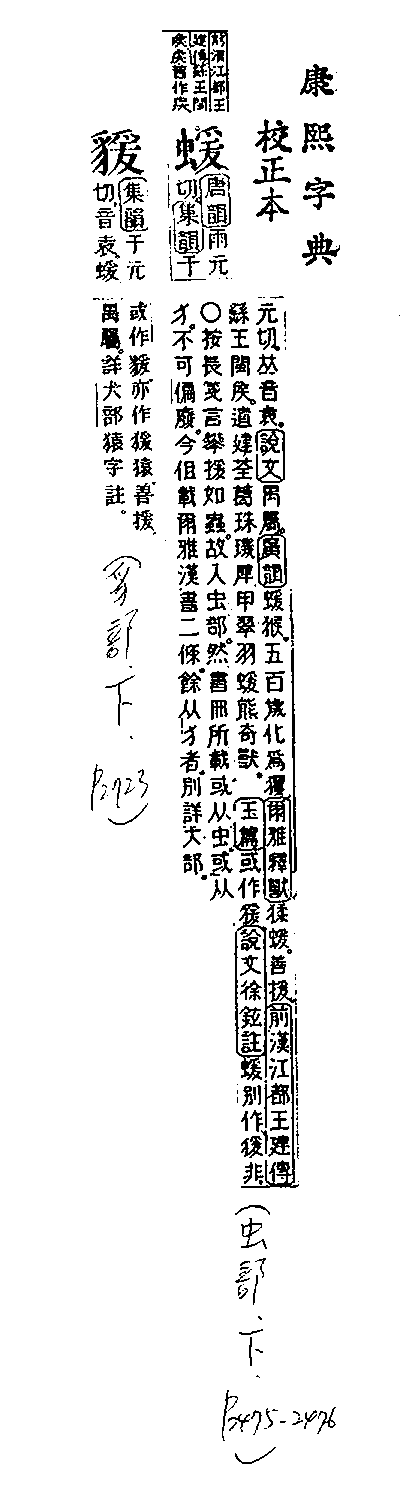 康熙字典
校正本
前漢江都王
建傳繇王閩
侯矦舊作矦
蝯
唐韻雨元
切集韻于
元切𠀤音袁說文禺屬廣韻蝯猴五百歲化爲玃爾雅釋獸猱蝯善援前漢江都王建傳
繇王閩矦遺建荃葛珠璣犀甲翠羽蝯熊奇獸玉篇或作猨說文徐鉉註蝯別作猨非
〇按長箋言攀援如蟲故入虫部然書冊所載或从虫或从
犭不可偏廢今但載爾雅漢書二條餘从犭者別詳犬部
貑
集韻于元
切音袁蝯
或作貑亦作猨猿善援
禺屬詳犬部猿字註
(豸部、下、
P.2723)
(虫部、下、
P.2475-2476)